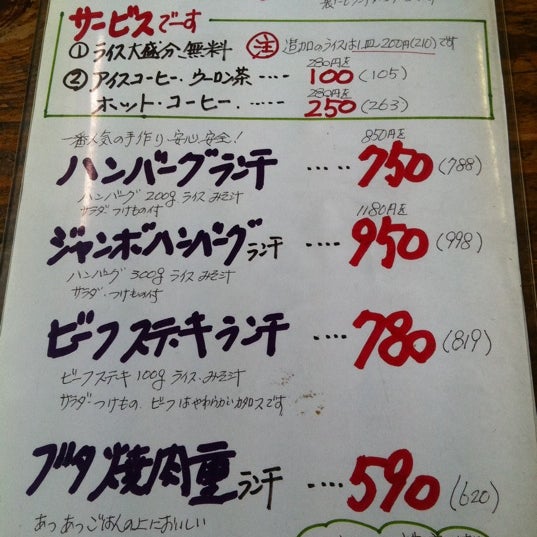 サービスでーす
① ライス大盛分、無料 注 追加のライスは1皿200円(210)です
280円を
② アイスコーヒー・ウーロン茶 ‥‥ 100(105)
280円を
ホット・コーヒー ‥‥‥ 250(263)
一番人気の手作り、安心、安全!
850円を
ハンバーグランチ ‥‥ 750(788)
ハンバーグ 200g ライス みそ汁
サラダ つけもの付
1180円を
ジャンボハンバーグランチ ‥‥ 950(998)
ハンバーグ 300g ライス みそ汁
サラダ・つけもの付
ビーフステーキランチ ‥‥ 780(819)
ビーフステーキ 100g ライス・みそ汁
サラダ・つけもの、ビーフはやわらかいカタロースです
ブタ焼肉重ランチ ‥‥ 590(620)
あつあつごはんの上においしい